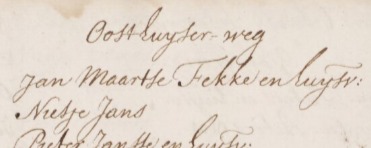 Oosthuyser-weg
Jan Maartse Fekke en huysv:
Nietje Jans
Pieter Jansse en huysv: